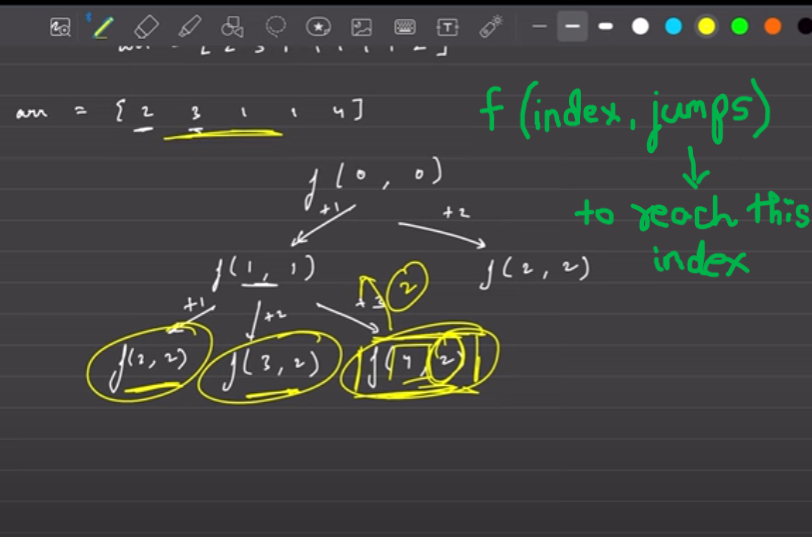 arr = [ 2 3 1 1 4 ]
f (index, jumps)
to reach this
index
f (0, 0)
+1
+2
f(1, 1)
f(2, 2)
+1
+2
+3
2
f(2, 2)
f(3, 2)
f(4, 2)